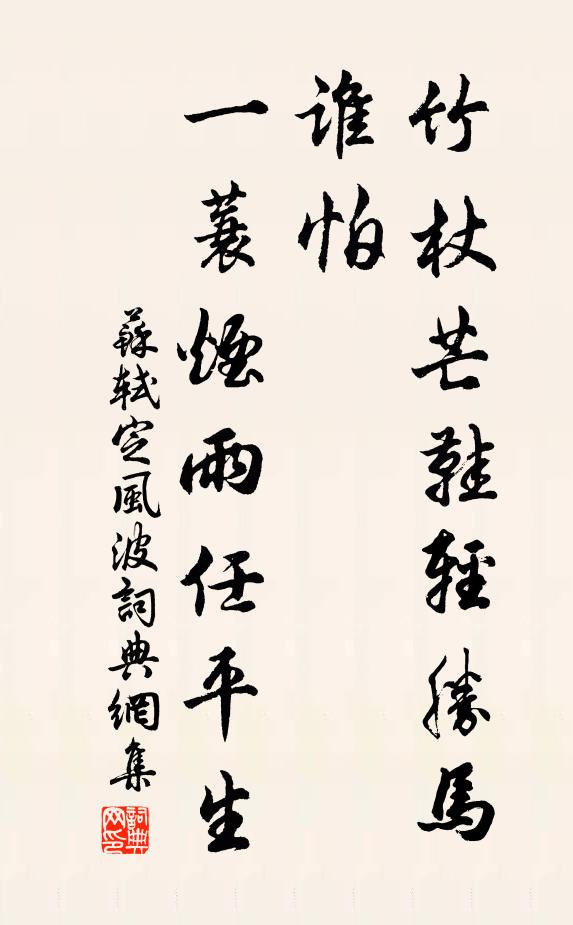 竹杖芒鞋輕勝馬
誰怕
一蓑煙雨任平生
蘇軾定風波詞典網集
詞典網印